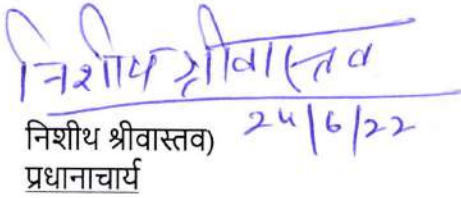 निशीथ श्रीवास्तव
24/6/22
निशीथ श्रीवास्तव)
प्रधानाचार्य